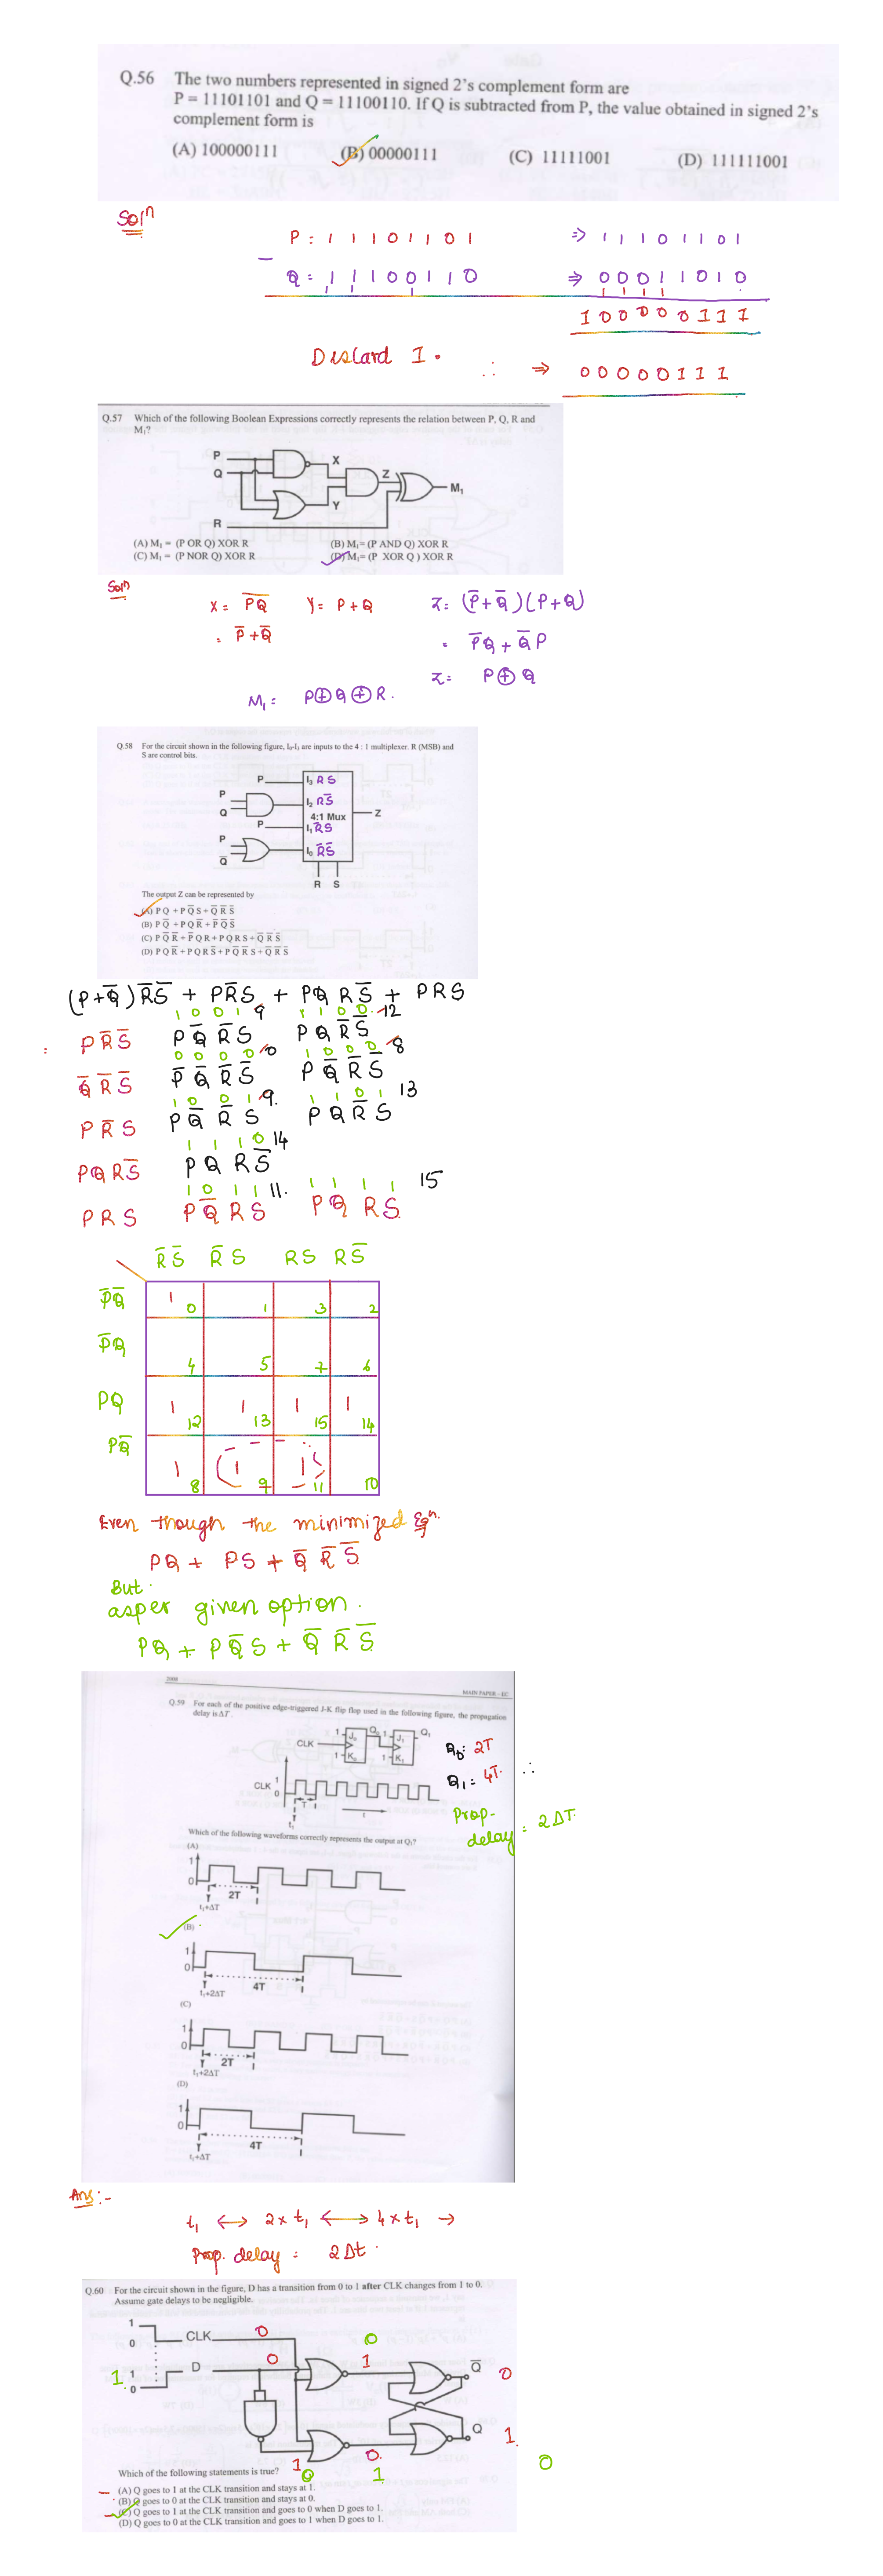 Q.56 The two numbers represented in signed 2's complement form are
P = 11101101 and Q = 11100110. If Q is subtracted from P, the value obtained in signed 2's
complement form is
(A) 100000111 (B) 00000111 (C) 11111001 (D) 111111001
Solⁿ
P : 1 1 1 0 1 1 0 1 ⇒ 1 1 1 0 1 1 0 1
− Q = 1 1 1 0 0 1 1 0 ⇒ 0 0 0 1 1 0 1 0
1 0 0 0 0 0 1 1 1
Discard 1. ∴ ⇒ 0 0 0 0 0 1 1 1
Q.57 Which of the following Boolean Expressions correctly represents the relation between P, Q, R and
M₁?
P
Q
X
Z
M₁
Y
R
(A) M₁ = (P OR Q) XOR R (B) M₁= (P AND Q) XOR R
(C) M₁ = (P NOR Q) XOR R (D) M₁= (P XOR Q ) XOR R
Solⁿ
X = P̅Q̅ Y= P+Q Z= (P̅+Q̅)(P+Q)
= P̅+Q̅ = P̅Q+Q̅P
Z= P⊕Q
M₁= P⊕Q⊕R.
Q.58 For the circuit shown in the following figure, I₀-I₃ are inputs to the 4 : 1 multiplexer. R (MSB) and
S are control bits.
P I₃ RS
P
Q I₂ RS̅
4:1 Mux Z
P I₁ R̅S
P
Q̅ I₀ R̅S̅
R S
The output Z can be represented by
(A) P Q + P Q̅ S + Q̅ R̅ S̅
(B) P Q̅ + P Q R̅ + P̅ Q̅ S̅
(C) P Q̅ R̅ + P̅ Q R + P Q R S + Q̅ R̅ S̅
(D) P Q R̅ + P Q R S̅ + P Q̅ R̅ S + Q̅ R̅ S̅
(P+Q̅)R̅S̅ + PR̅S + PQRS̅ + PRS
1 0 0 1 9 1 1 0 0 12
= PR̅S̅ PQ̅R̅S PQR̅S̅
0 0 0 0 0 1 0 0 0 8
Q̅R̅S̅ P̅Q̅R̅S̅ PQ̅R̅S̅
1 0 0 1 9. 1 1 0 1 13
PR̅S PQ̅R̅S PQR̅S
1 1 1 0 14
PQRS̅ PQRS̅
1 0 1 1 11. 1 1 1 1 15
PRS PQ̅RS PQRS
R̅S̅ R̅S RS RS̅
P̅Q̅ 1 0 1 3 2
P̅Q 4 5 7 6
PQ 1 12 1 13 1 15 1 14
PQ̅ 1 8 1 9 1 11 10
Even though the minimized Eqⁿ.
PQ + PS + Q̅R̅S̅
But
asper given option.
PQ + PQ̅S + Q̅R̅S̅
2008 MAIN PAPER - EC
Q.59 For each of the positive edge-triggered J-K flip flop used in the following figure, the propagation
delay is ΔT.
CLK 1 J₀ K₀ 1 Q₀ 1 J₁ K₁ 1 Q₁
Q₀: 2T
Q₁: 4T. ∴
Prop-
delay = 2ΔT.
CLK 1 0
T
t₁
t
Which of the following waveforms correctly represents the output at Q₁?
(A)
1
0
2T
t₁+ΔT
(B)
1
0
4T
t₁+2ΔT
(C)
1
0
2T
t₁+2ΔT
(D)
1
0
4T
t₁+ΔT
Ans:-
t₁ ↔ 2×t₁ ↔ 4×t₁ →
Prop. delay = 2Δt.
Q.60 For the circuit shown in the figure, D has a transition from 0 to 1 after CLK changes from 1 to 0.
Assume gate delays to be negligible.
1
0 CLK 0 0
1. 1
0 D 0 1 Q̅ 0
Q 1.
1 0 0. 1 0
Which of the following statements is true?
(A) Q goes to 1 at the CLK transition and stays at 1.
(B) Q goes to 0 at the CLK transition and stays at 0.
(C) Q goes to 1 at the CLK transition and goes to 0 when D goes to 1.
(D) Q goes to 0 at the CLK transition and goes to 1 when D goes to 1.